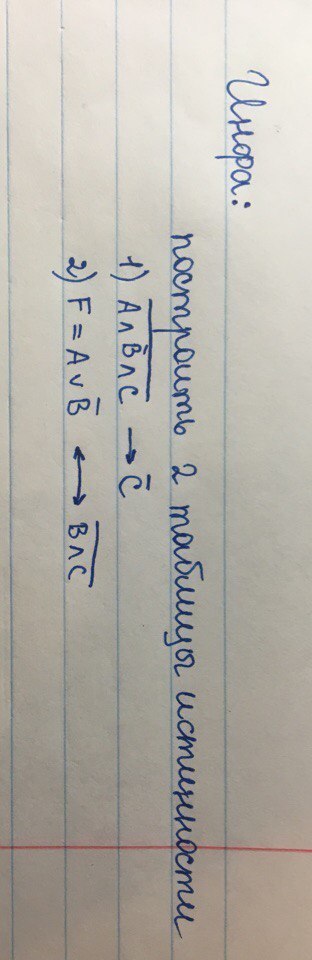 Инфа:
построить 2 таблицы истинности
1) \overline{A∧B̄∧C} → C̄
2) F = A∨B̄ ↔ \overline{B∧C}